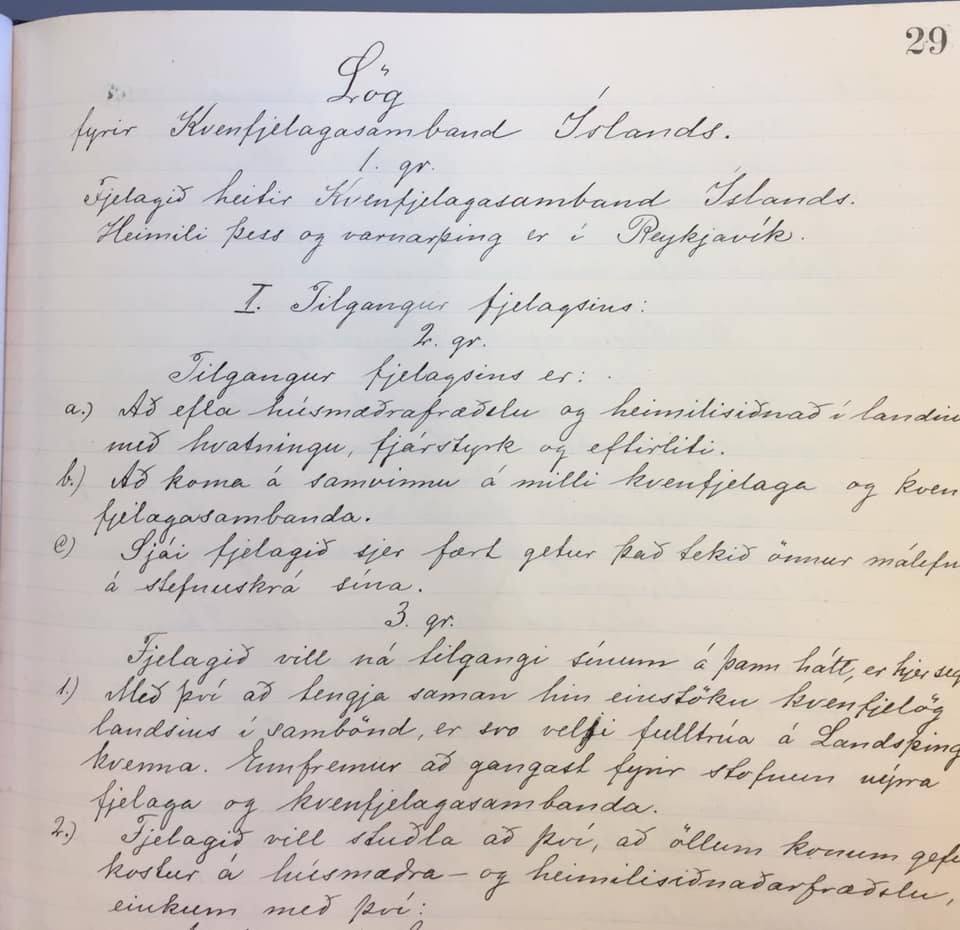 29
Lög
fyrir Kvenfjelagasamband Íslands.
1. gr.
Fjelagið heitir Kvenfjelagasamband Íslands.
Heimili þess og varnarþing er í Reykjavík.
I. Tilgangur fjelagsins:
2. gr.
Tilgangur fjelagsins er:
a.) Að efla húsmæðrafræðslu og heimilisiðnað í landinu
með hvatningu, fjárstyrk og eftirliti.
b.) Að koma á samvinnu á milli kvenfjelaga og kven
fjelagasambanda.
c) Sjái fjelagið sjer fært getur það tekið önnur málefn
á stefnuskrá sína.
3. gr.
Fjelagið vill ná tilgangi sínum á þann hátt, er hjer seg
1.) Með því að tengja saman hin einstöku kvenfjelög
landsins í sambönd, er svo velji fulltrúa á Landsþing
kvenna. Ennfremur að gangast fyrir stofnun nýrra
fjelaga og kvenfjelagasambanda.
2.) Fjelagið vill stuðla að því, að öllum konum gefi
kostur á húsmæðra- og heimilisiðnaðarfræðslu,
einkum með því: